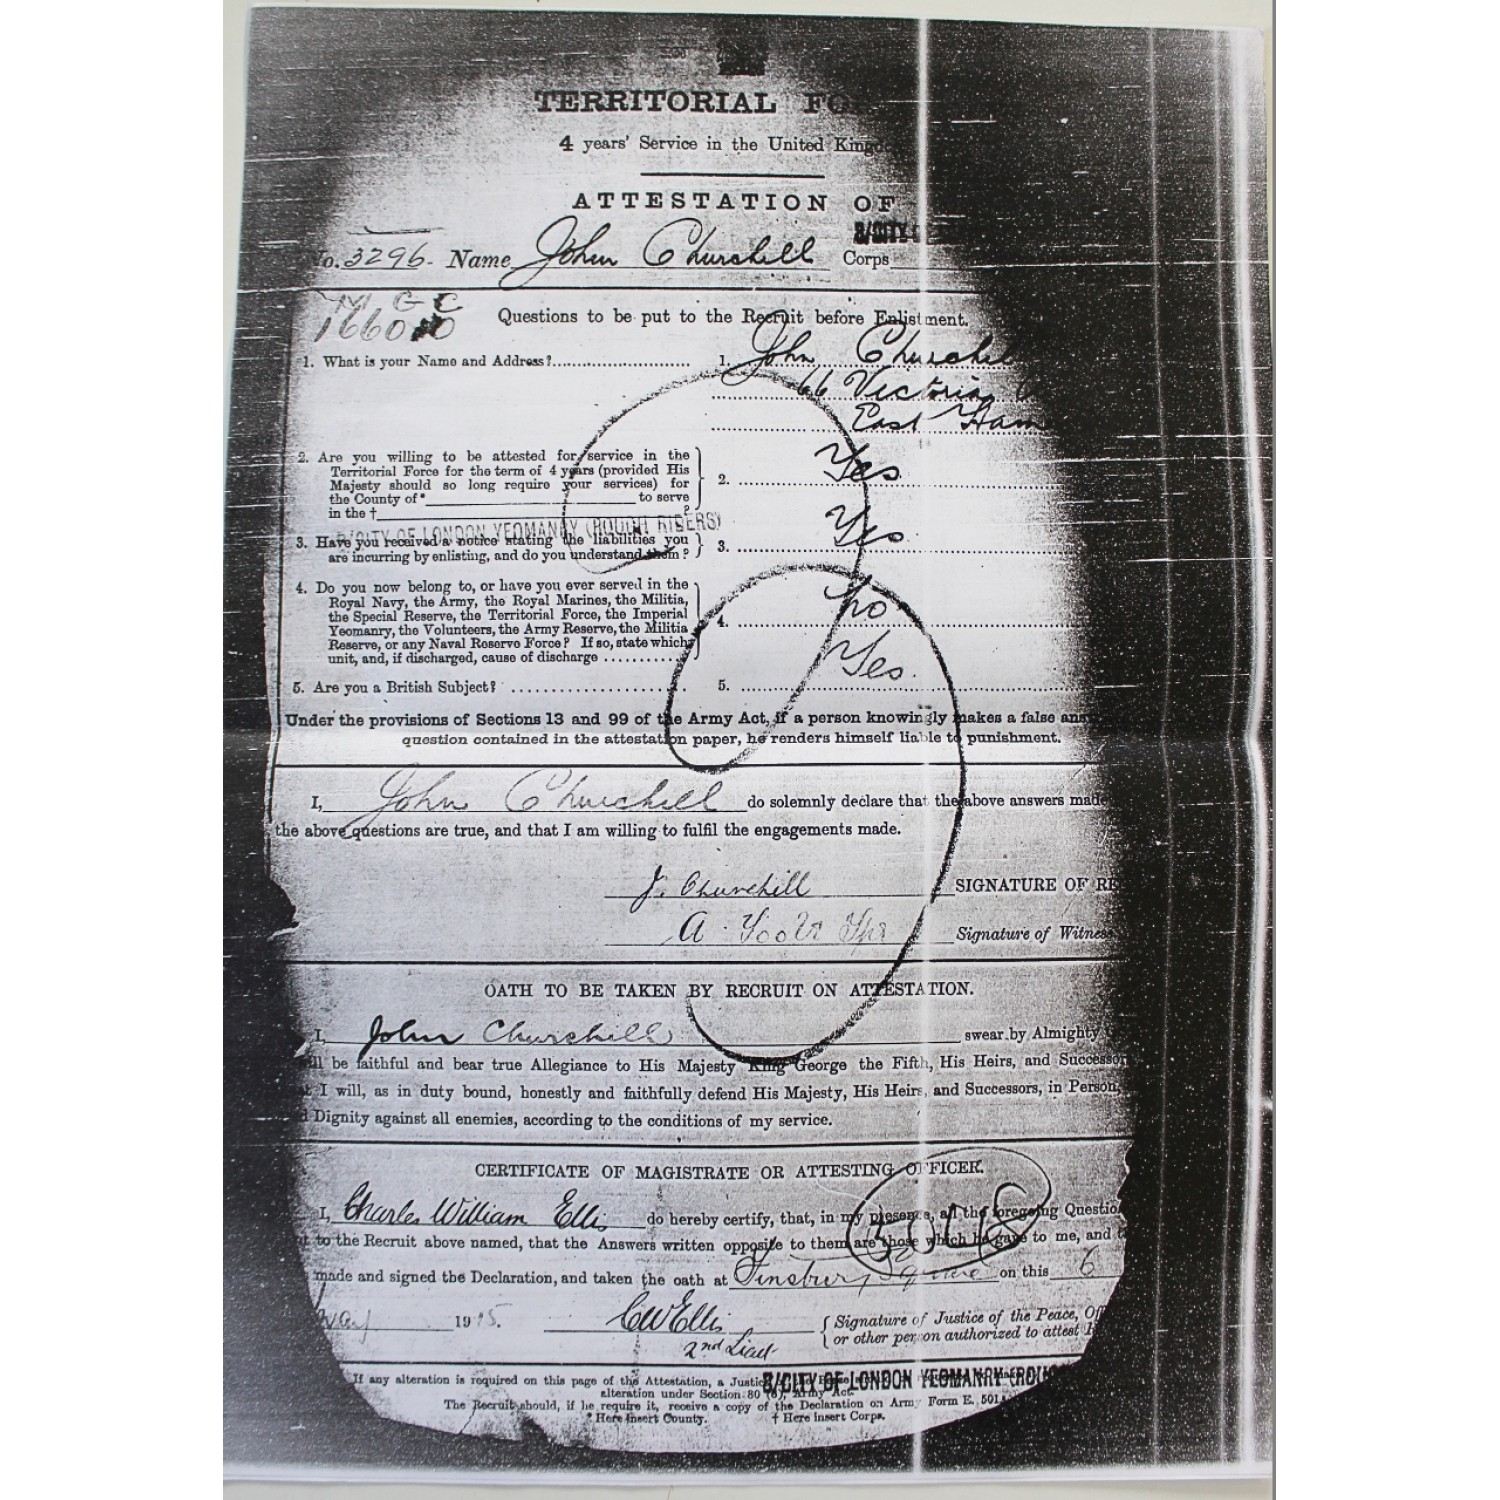 TERRITORIAL FO
4 years' Service in the United Kingdo
ATTESTATION OF
No. 3296. Name John Churchill Corps
M G C
Questions to be put to the Recruit before Enlistment.
1. What is your Name and Address? 1. John Churchill
66 Victoria
East Ham
2. Are you willing to be attested for service in the
Territorial Force for the term of 4 years (provided His
Majesty should so long require your services) for
the County of * to serve
in the † ?
2. Yes.
2/CITY OF LONDON YEOMANRY (ROUGH RIDERS)
3. Have you received a notice stating the liabilities you
are incurring by enlisting, and do you understand them?
3. Yes
4. Do you now belong to, or have you ever served in the
Royal Navy, the Army, the Royal Marines, the Militia,
the Special Reserve, the Territorial Force, the Imperial
Yeomanry, the Volunteers, the Army Reserve, the Militia
Reserve, or any Naval Reserve Force? If so, state which
unit, and, if discharged, cause of discharge
4. No
5. Are you a British Subject? 5. Yes.
Under the provisions of Sections 13 and 99 of the Army Act, if a person knowingly makes a false ans
question contained in the attestation paper, he renders himself liable to punishment.
I, John Churchill do solemnly declare that the above answers made
the above questions are true, and that I am willing to fulfil the engagements made.
J. Churchill SIGNATURE OF RE
A. Signature of Witness
OATH TO BE TAKEN BY RECRUIT ON ATTESTATION.
I, John Churchill swear by Almighty
will be faithful and bear true Allegiance to His Majesty King George the Fifth, His Heirs, and Successor
I will, as in duty bound, honestly and faithfully defend His Majesty, His Heirs, and Successors, in Person,
d Dignity against all enemies, according to the conditions of my service.
CERTIFICATE OF MAGISTRATE OR ATTESTING OFFICER.
I, Charles William Ellis do hereby certify, that, in my presence, all the foregoing Questio
to the Recruit above named, that the Answers written opposite to them are those which he gave to me, and t
made and signed the Declaration, and taken the oath at Finsbury Square on this 6
1915. CWEllis { Signature of Justice of the Peace, Of
2nd Lieut or other person authorized to attest
If any alteration is required on this page of the Attestation, a Justice
2/CITY OF LONDON YEOMANRY (ROUG
alteration under Section 80 (6), Army Act.
The Recruit should, if he require it, receive a copy of the Declaration on Army Form E. 501
* Here insert County. † Here insert Corps.